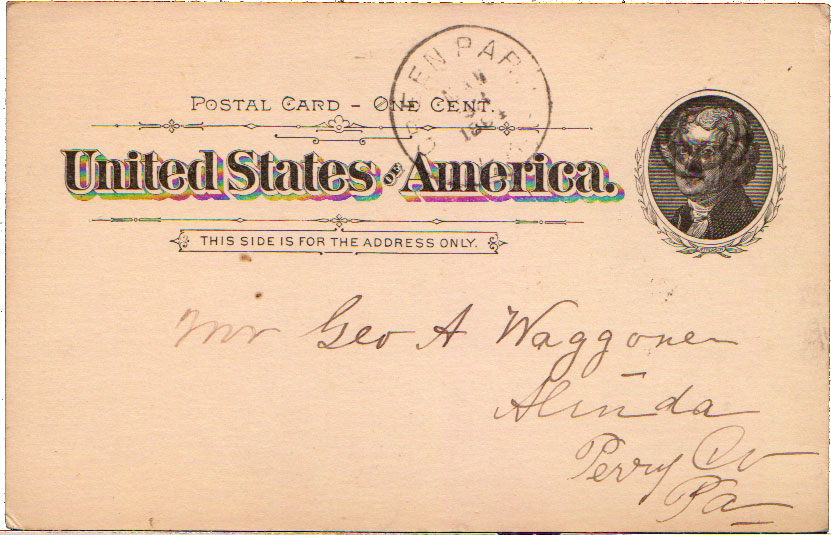 GREEN PARK
POSTAL CARD - ONE CENT
United States OF America.
THIS SIDE IS FOR THE ADDRESS ONLY.
Mr Geo A Waggoner
Alinda
Perry Co
Pa